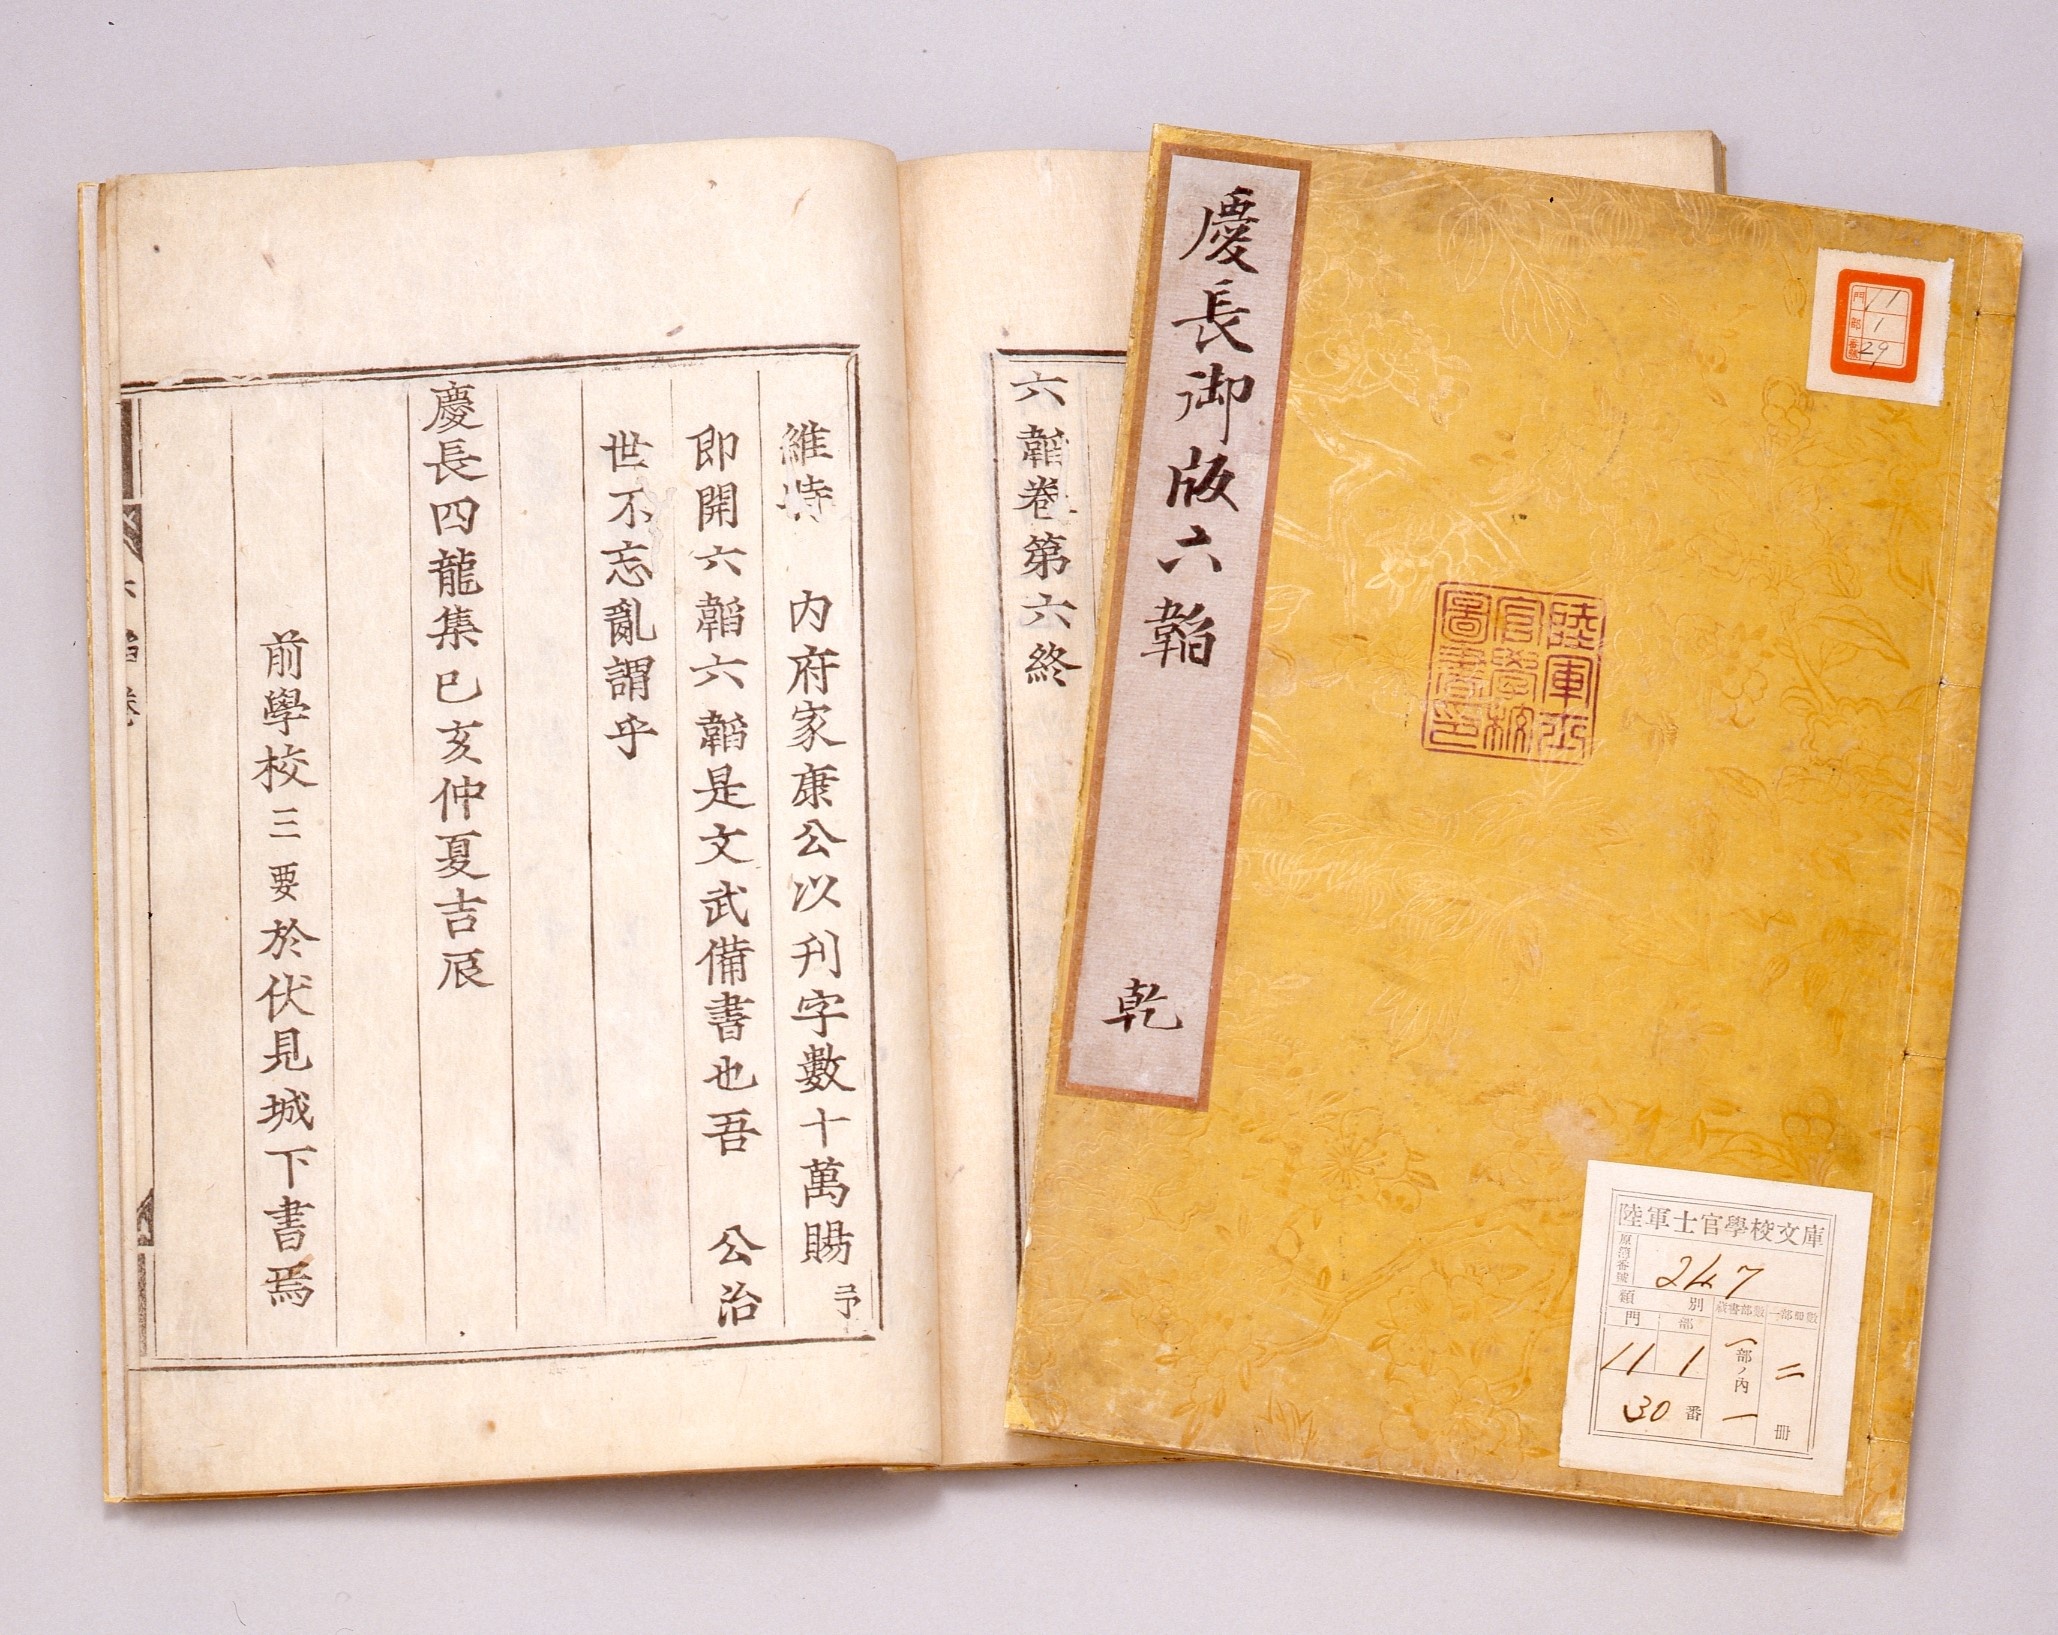 慶長御版六韜
乾
門 11
部 1
番號 29
陸軍士
官學校
圖書印
陸軍士官學校文庫
原簿番號 247
類別 藏書部數 一部冊數
門 部
11 1
30番
一部ノ内一
二冊
六韜卷第六終
維時 内府家康公以刊字數十萬賜予
即開六韜六韜是文武備書也吾 公治
世不忘亂謂乎
慶長四龍集己亥仲夏吉辰
前學校三要於伏見城下書焉
六韜卷